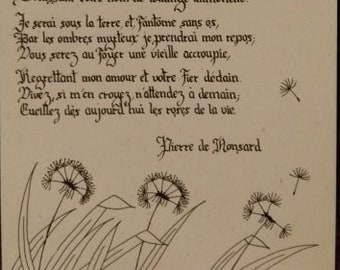 Bénissant votre nom de louange immortelle.
Je serai sous la terre, et fantôme sans os,
Par les ombres myrteux je prendrai mon repos;
Vous serez au foyer une vieille accroupie,
Regrettant mon amour et votre fier dédain.
Vivez, si m'en croyez, n'attendez à demain;
Cueillez dès aujourd'hui les roses de la vie.
Pierre de Ronsard